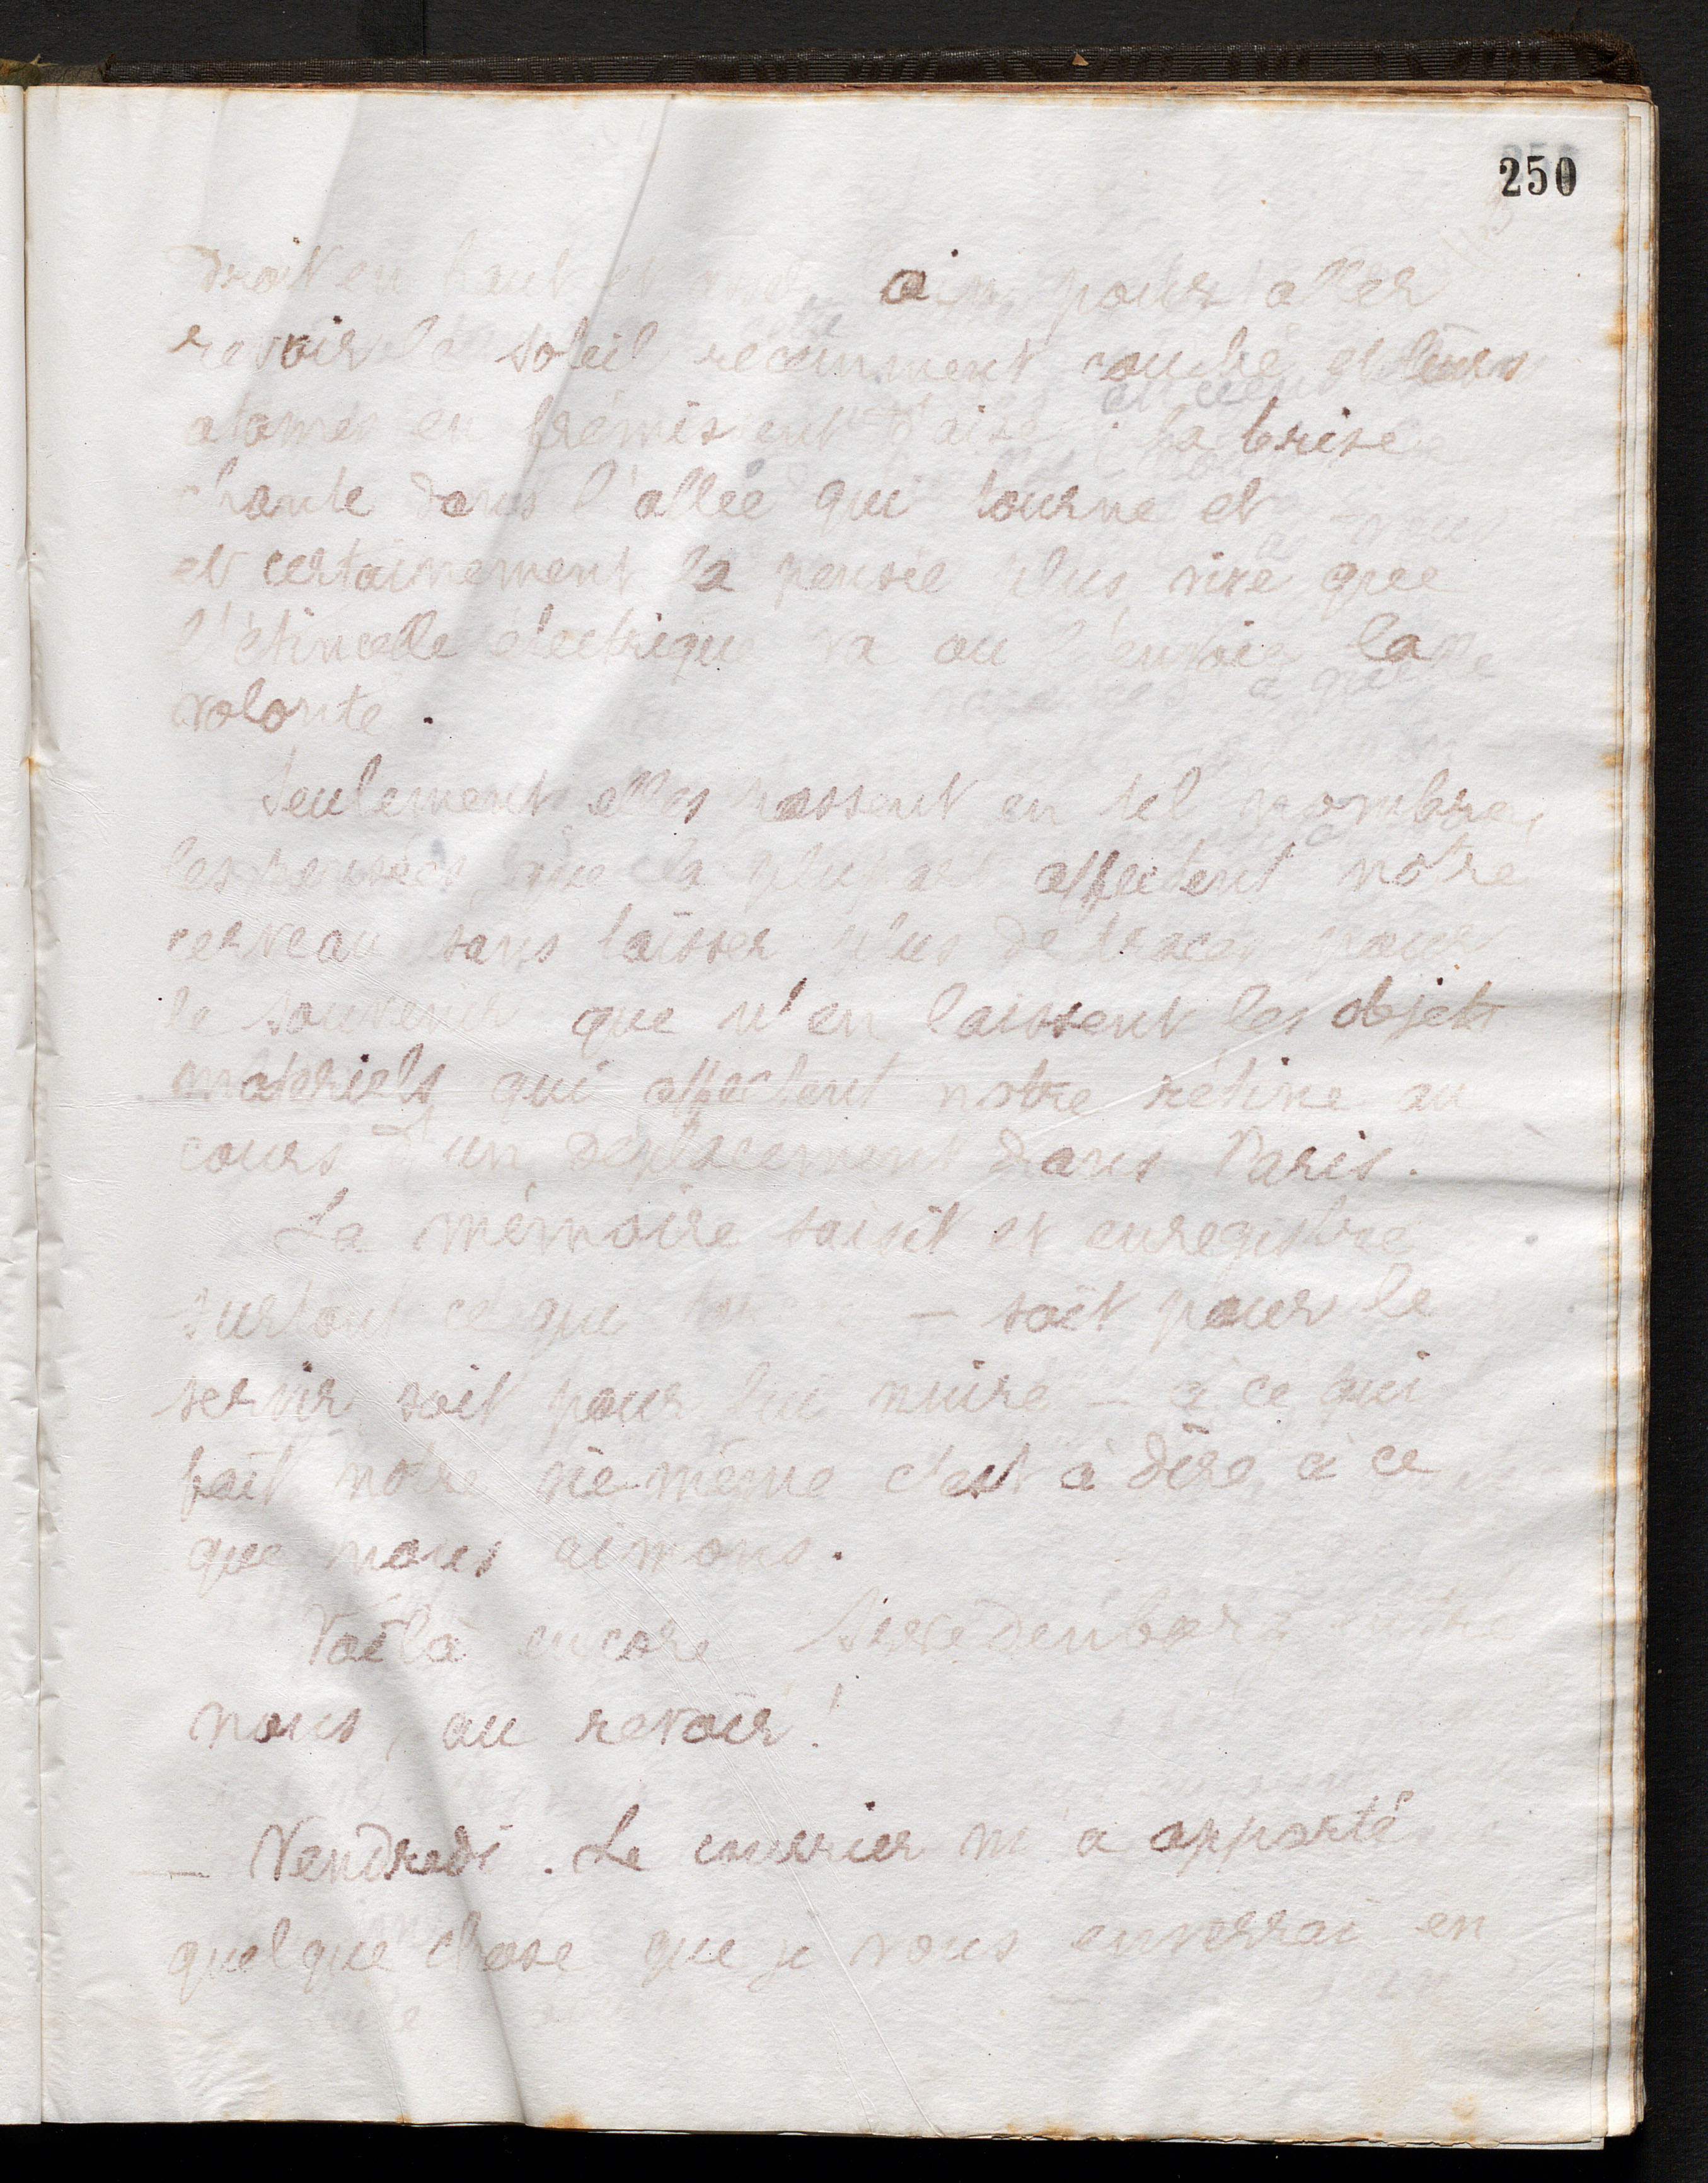 250
droit en haut et pour aller
revoir le soleil récemment couché et leurs
atomes en frémissent d'aise ; la brise
chante dans l'allée qui tourne et
et certainement la pensée plus vive que
l'étincelle électrique va ou l'envoie la
volonte.
Seulement elles passent en tel nombre,
les pensées, que la plupart affectent notre
cerveau sans laisser plus de traces pour
le souvenir que n'en laissent les objets
matériels qui affectent notre rétine au
cours d'un déplacement dans Paris.
La mémoire saisit et enregistre
surtout ce qui — soit pour le
servir, soit pour lui nuire — à ce qui
fait notre vie même c'est à dire, à ce
que nous aimons.
Voilà encore Swedenborg entre
nous, au revoir !
— Vendredi. Le courrier m'a apporté
quelque chose que je vous enverrai en